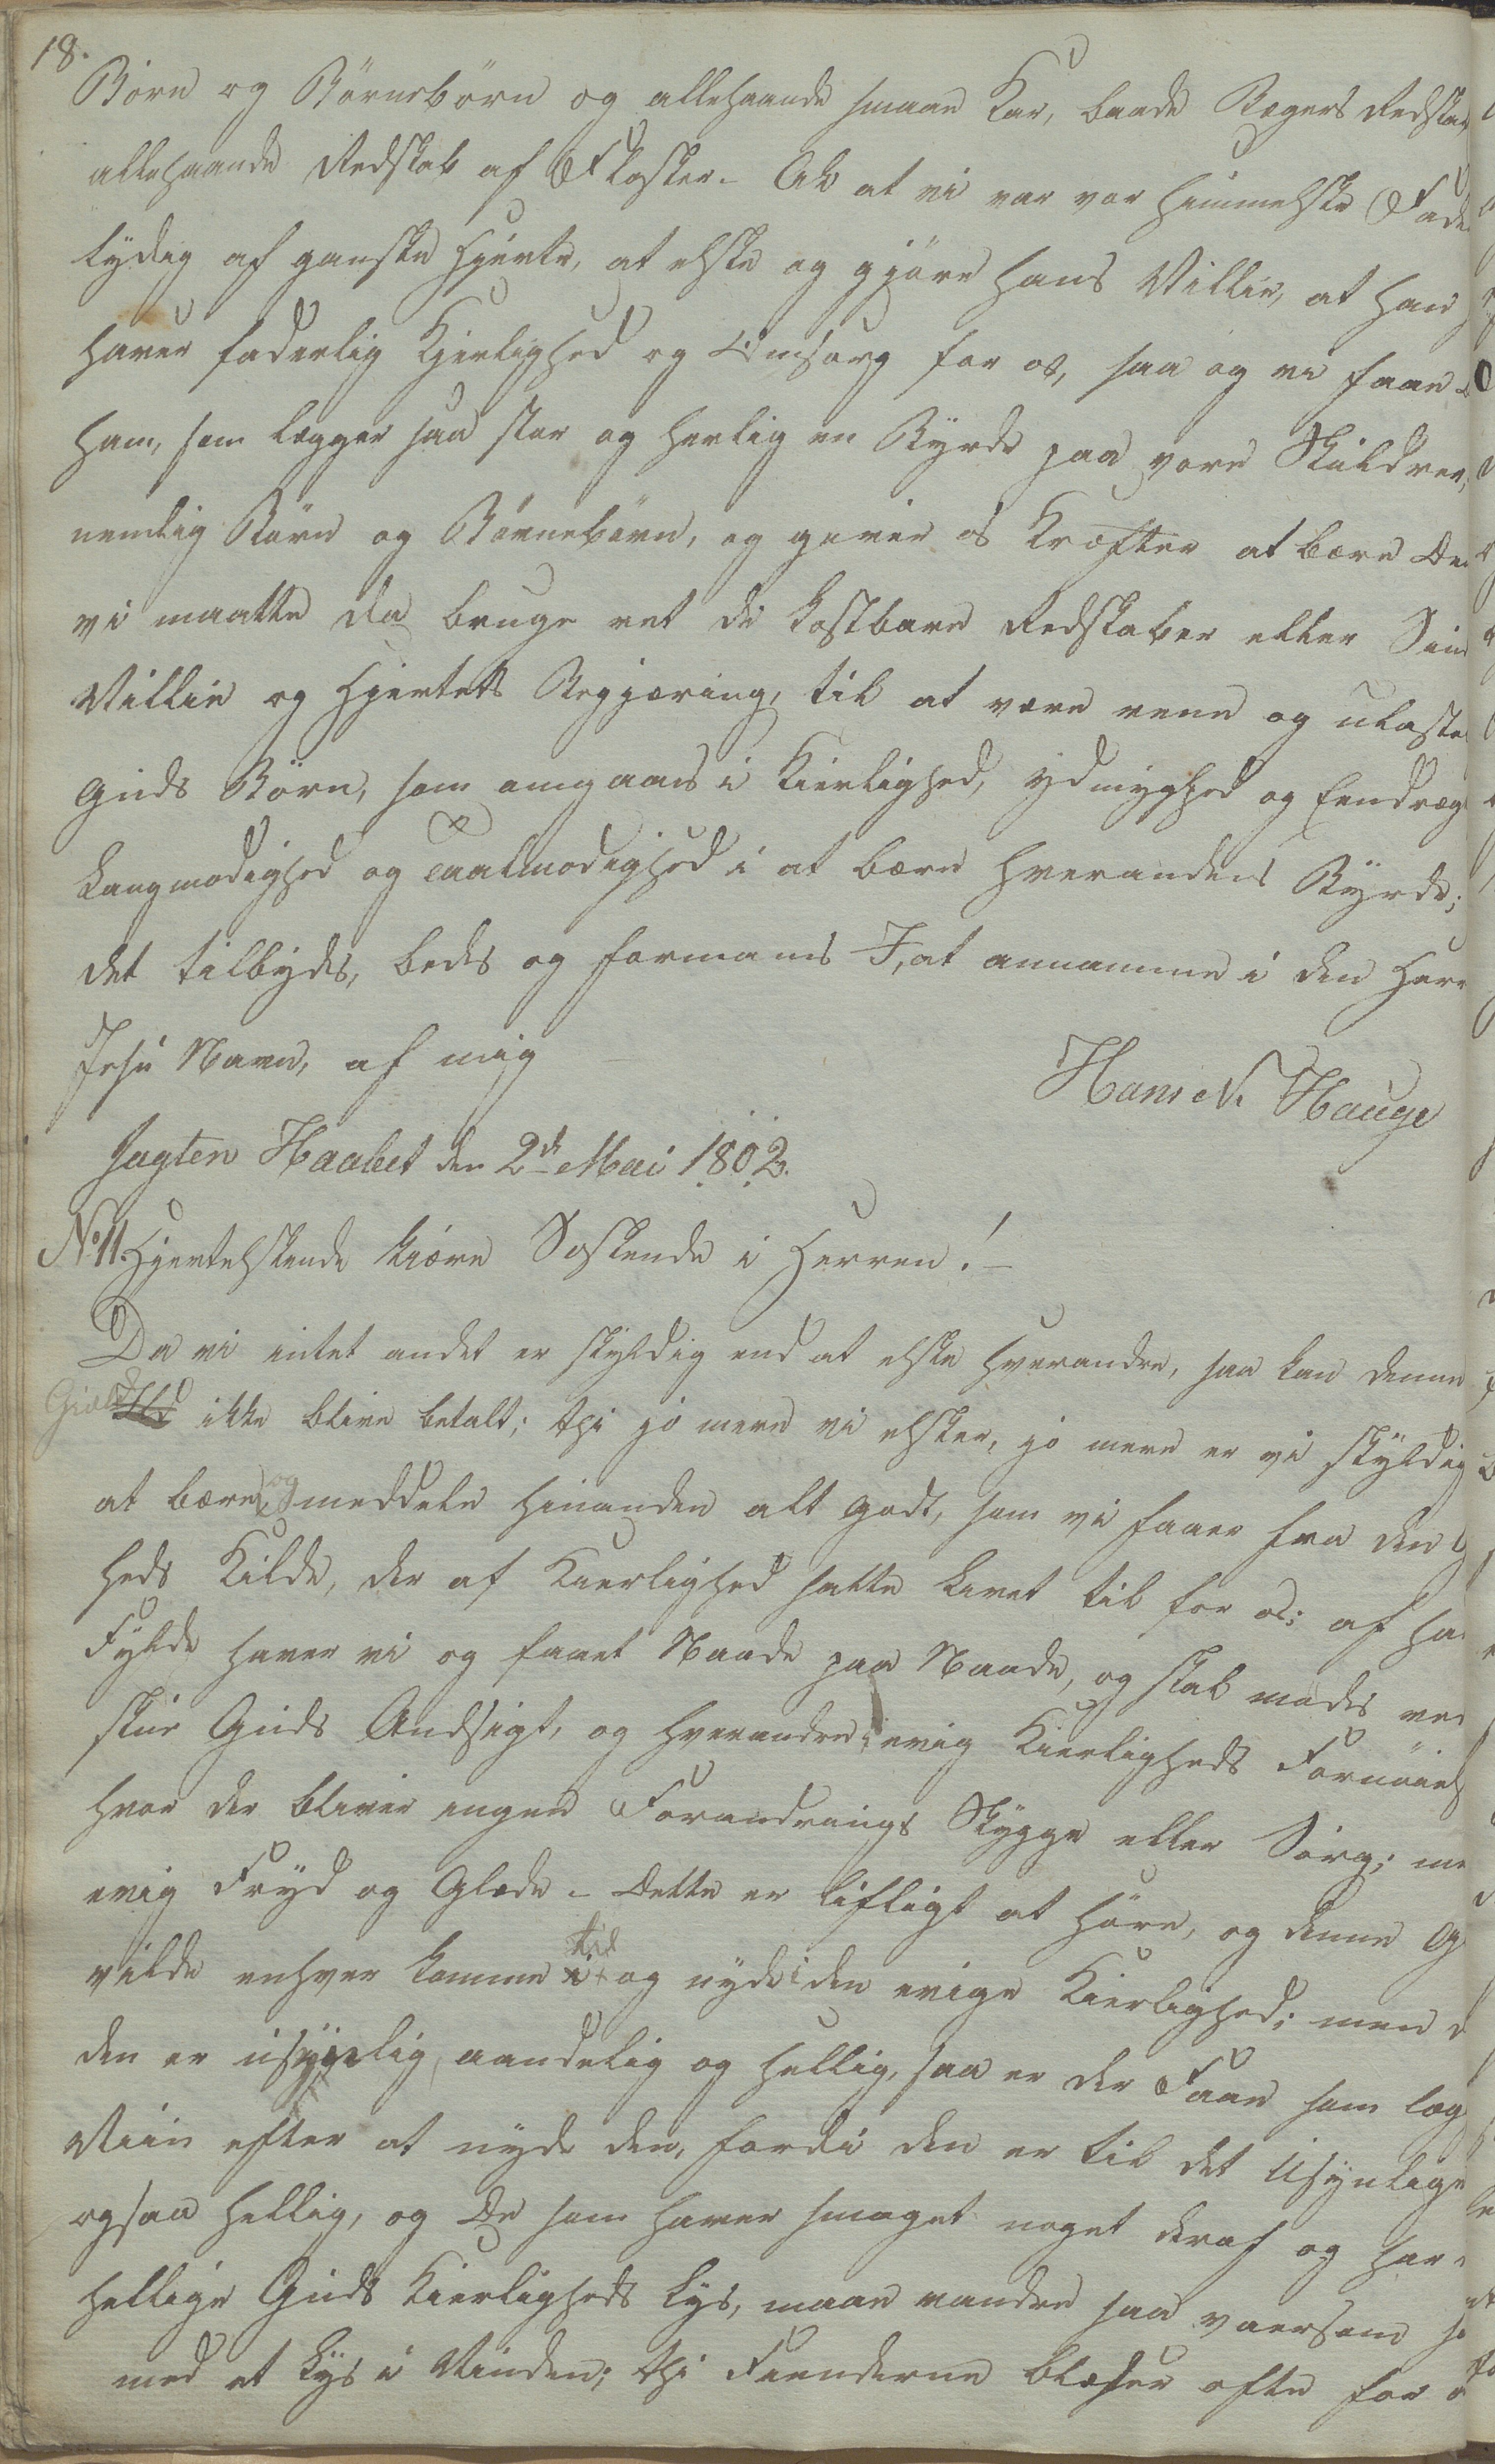 18.
Börn og Börnebörn og allehaande smaae Kar, baade Bægers Redskab
allehaande Redskab af Flasker. Ak at vi var vor himmelske Fader
lydig af ganske Hjerte, at elske og gjöre hans Villie, at han
haver faderlig Kjerlighed og Omsorg for os, saa og vi faae
ham, som lægger saa stor og herlig en Byrde paa vore Skuldre,
nemlig Börn og Börnebörn, og giver os Kræfter at bære den
vi maatte da bruge ret de kostbare Redskaber eller Sind
Villie og Hjertets Begjæring, til at være rene og ulaste
Guds Börn, som omgaaes i Kierlighed, Ydmyghed og Eendræg
Langmodighed og Taalmodighed i at bære hverandres Byrde;
det tilbydes, bedes og formanes I, at annamme i den Herre
Jesu Navn, af mig
Hans N. Hauge
Jagten Haabet den 2de Mai 1802.
No 11. Hjertelskende kiære Söskende i Herren!
Da vi intet andet er skyldig end at elske hverandre, saa kan denne
Gield ikke blive betalt; thi jo mere vi elsker, jo mere er vi skyldig
at bære og meddele hinanden alt godt, som vi faaer fra den
heds Kilde, der af Kierlighed satte Livet til for os; af ha
Fylde haver vi og faaet Naade paa Naade, og skal mödes ved
skue Guds Andsigt, og hverandre i evig Kierligheds Fornöiels
hvor der bliver ingen Forandrings Skygge eller Sorg; me
evig Fryd og Glæde. Dette er lifligt at höre, og denne G
vilde enhver komme til og nyde i den evige Kierlighed; men d
den er usynlig, aandelig og hellig, saa er der Faae som læg
Viin efter at nyde den, fordi den er til det Usynlige
ogsaa hellig, og De som haver smaget noget deraf og har
hellige Guds Kierligheds Lys, maae vandre saa varsom so
med et Lys i Vinden; thi Fienderne blæser ofte for